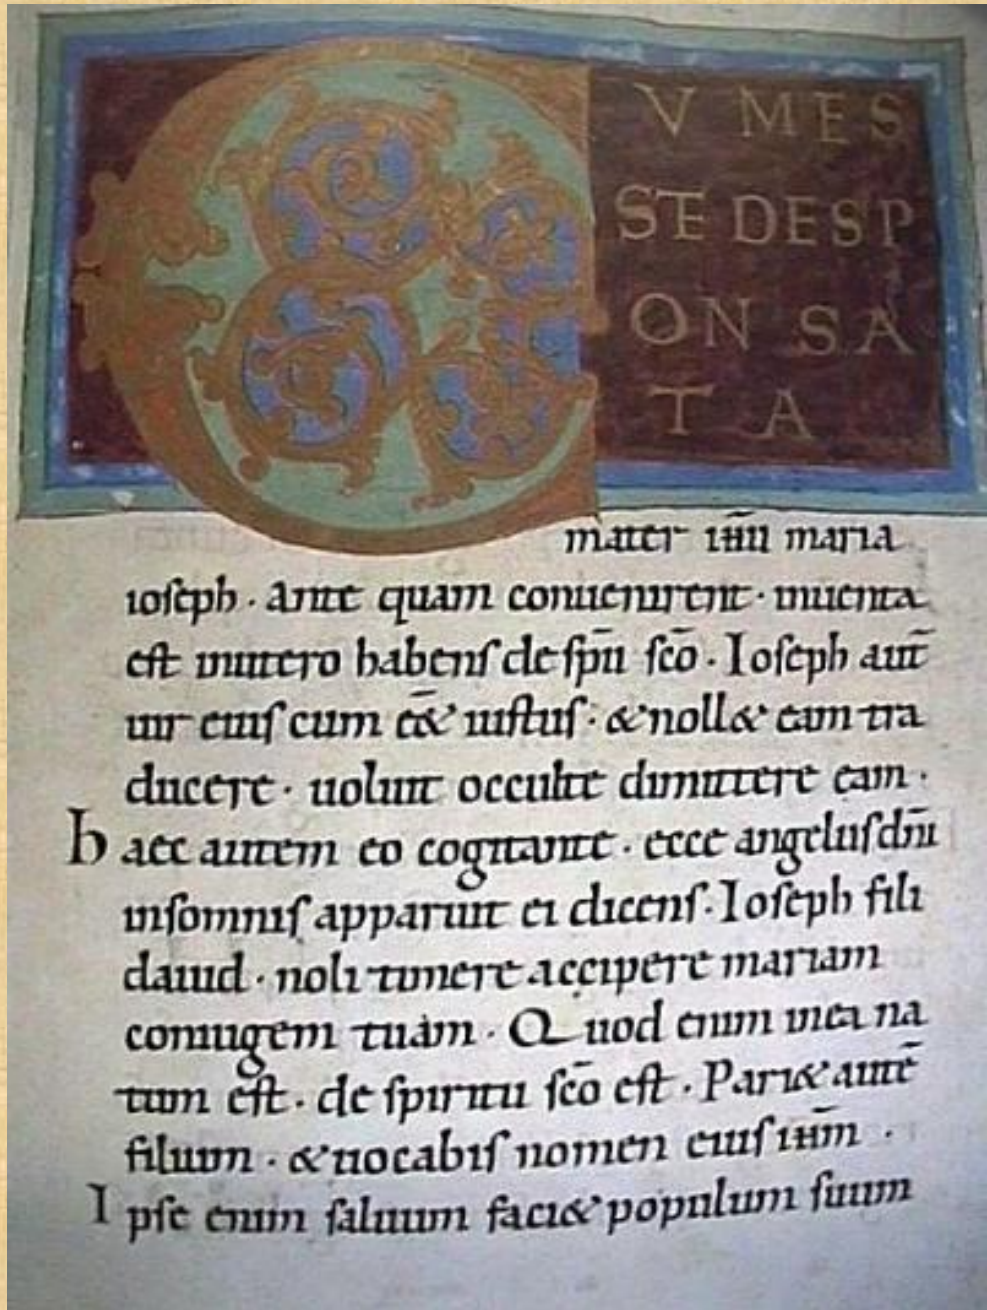 C V M E S
S T E D E S P
O N S A
T A
mater ihu̅ maria
ioseph · Ante quam conuenirent · inuenta
est inutero habens de spu̅ sco̅ · Ioseph aut̅
uir eius cum e̅& iustus · & noll& eam tra
ducere · uoluit occulte dimittere eam ·
haec autem eo cogitante · ecce angelus dn̅i
insomnis apparuit ei dicens · Ioseph fili
dauid · noli timere accipere mariam
coniugem tuam · Quod enim inea na
tum est · de spiritu sco̅ est · Pari& aute̅
filium · & uocabis nomen eius ihm̅ ·
Ipse enim saluum faci& populum suum